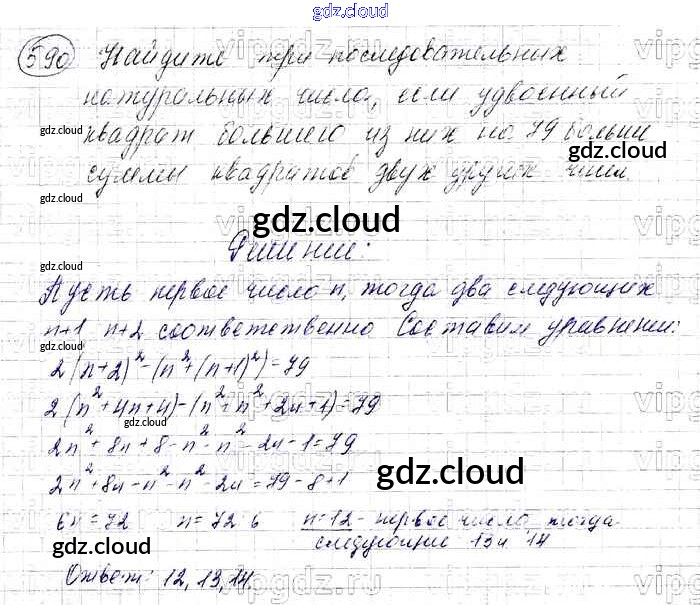 gdz.cloud
590 Найдите три последовательных
натуральных числа, если удвоенный
gdz.cloud
квадрат большего из них на 79 больше
gdz.cloud
суммы квадратов двух других чисел.
gdz.cloud
gdz.cloud
Решение:
gdz.cloud
Пусть первое число n, тогда два следующих
n+1 n+2 соответственно Составим уравнение:
2(n+2)²-(n²+(n+1)²)=79
gdz.cloud
2(n²+4n+4)-(n²+n²+2n+1)=79
gdz.cloud
2n²+8n+8-n²-n²-2n-1=79
2n²+8n-n²-n²-2n=79-8+1
gdz.cloud
6n=72 n=72 6 n=12 - первое число, тогда
следующие 13 и 14
gdz.cloud
gdz.cloud
Ответ: 12, 13, 14
gdz.cloud